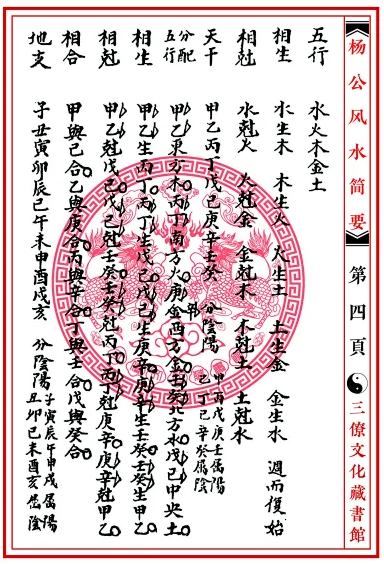 杨公风水简要
第四頁
三僚文化藏書館
五行 水火木金土
相生 水生木 木生火 火生土 土生金 金生水 週而復始
相尅 水尅火 火尅金 金尅木 木尅土 土尅水
天干 甲乙丙丁戊己庚辛壬癸 分陰陽 甲丙戊庚壬屬陽 乙丁己辛癸屬陰
分配五行 甲乙東方木丙丁南方火庚辛西方金壬癸北方水戊己中央土
相生 甲乙生丙丁丙丁生戊己戊己生庚辛庚辛生壬癸壬癸生甲乙
相尅 甲乙尅戊己戊己尅壬癸壬癸尅丙丁丙丁尅庚辛庚辛尅甲乙
相合 甲與己合乙與庚合丙與辛合丁與壬合戊與癸合
地支 子丑寅卯辰巳午未申酉戌亥 分陰陽 子寅辰午申戌屬陽 丑卯巳未酉亥屬陰